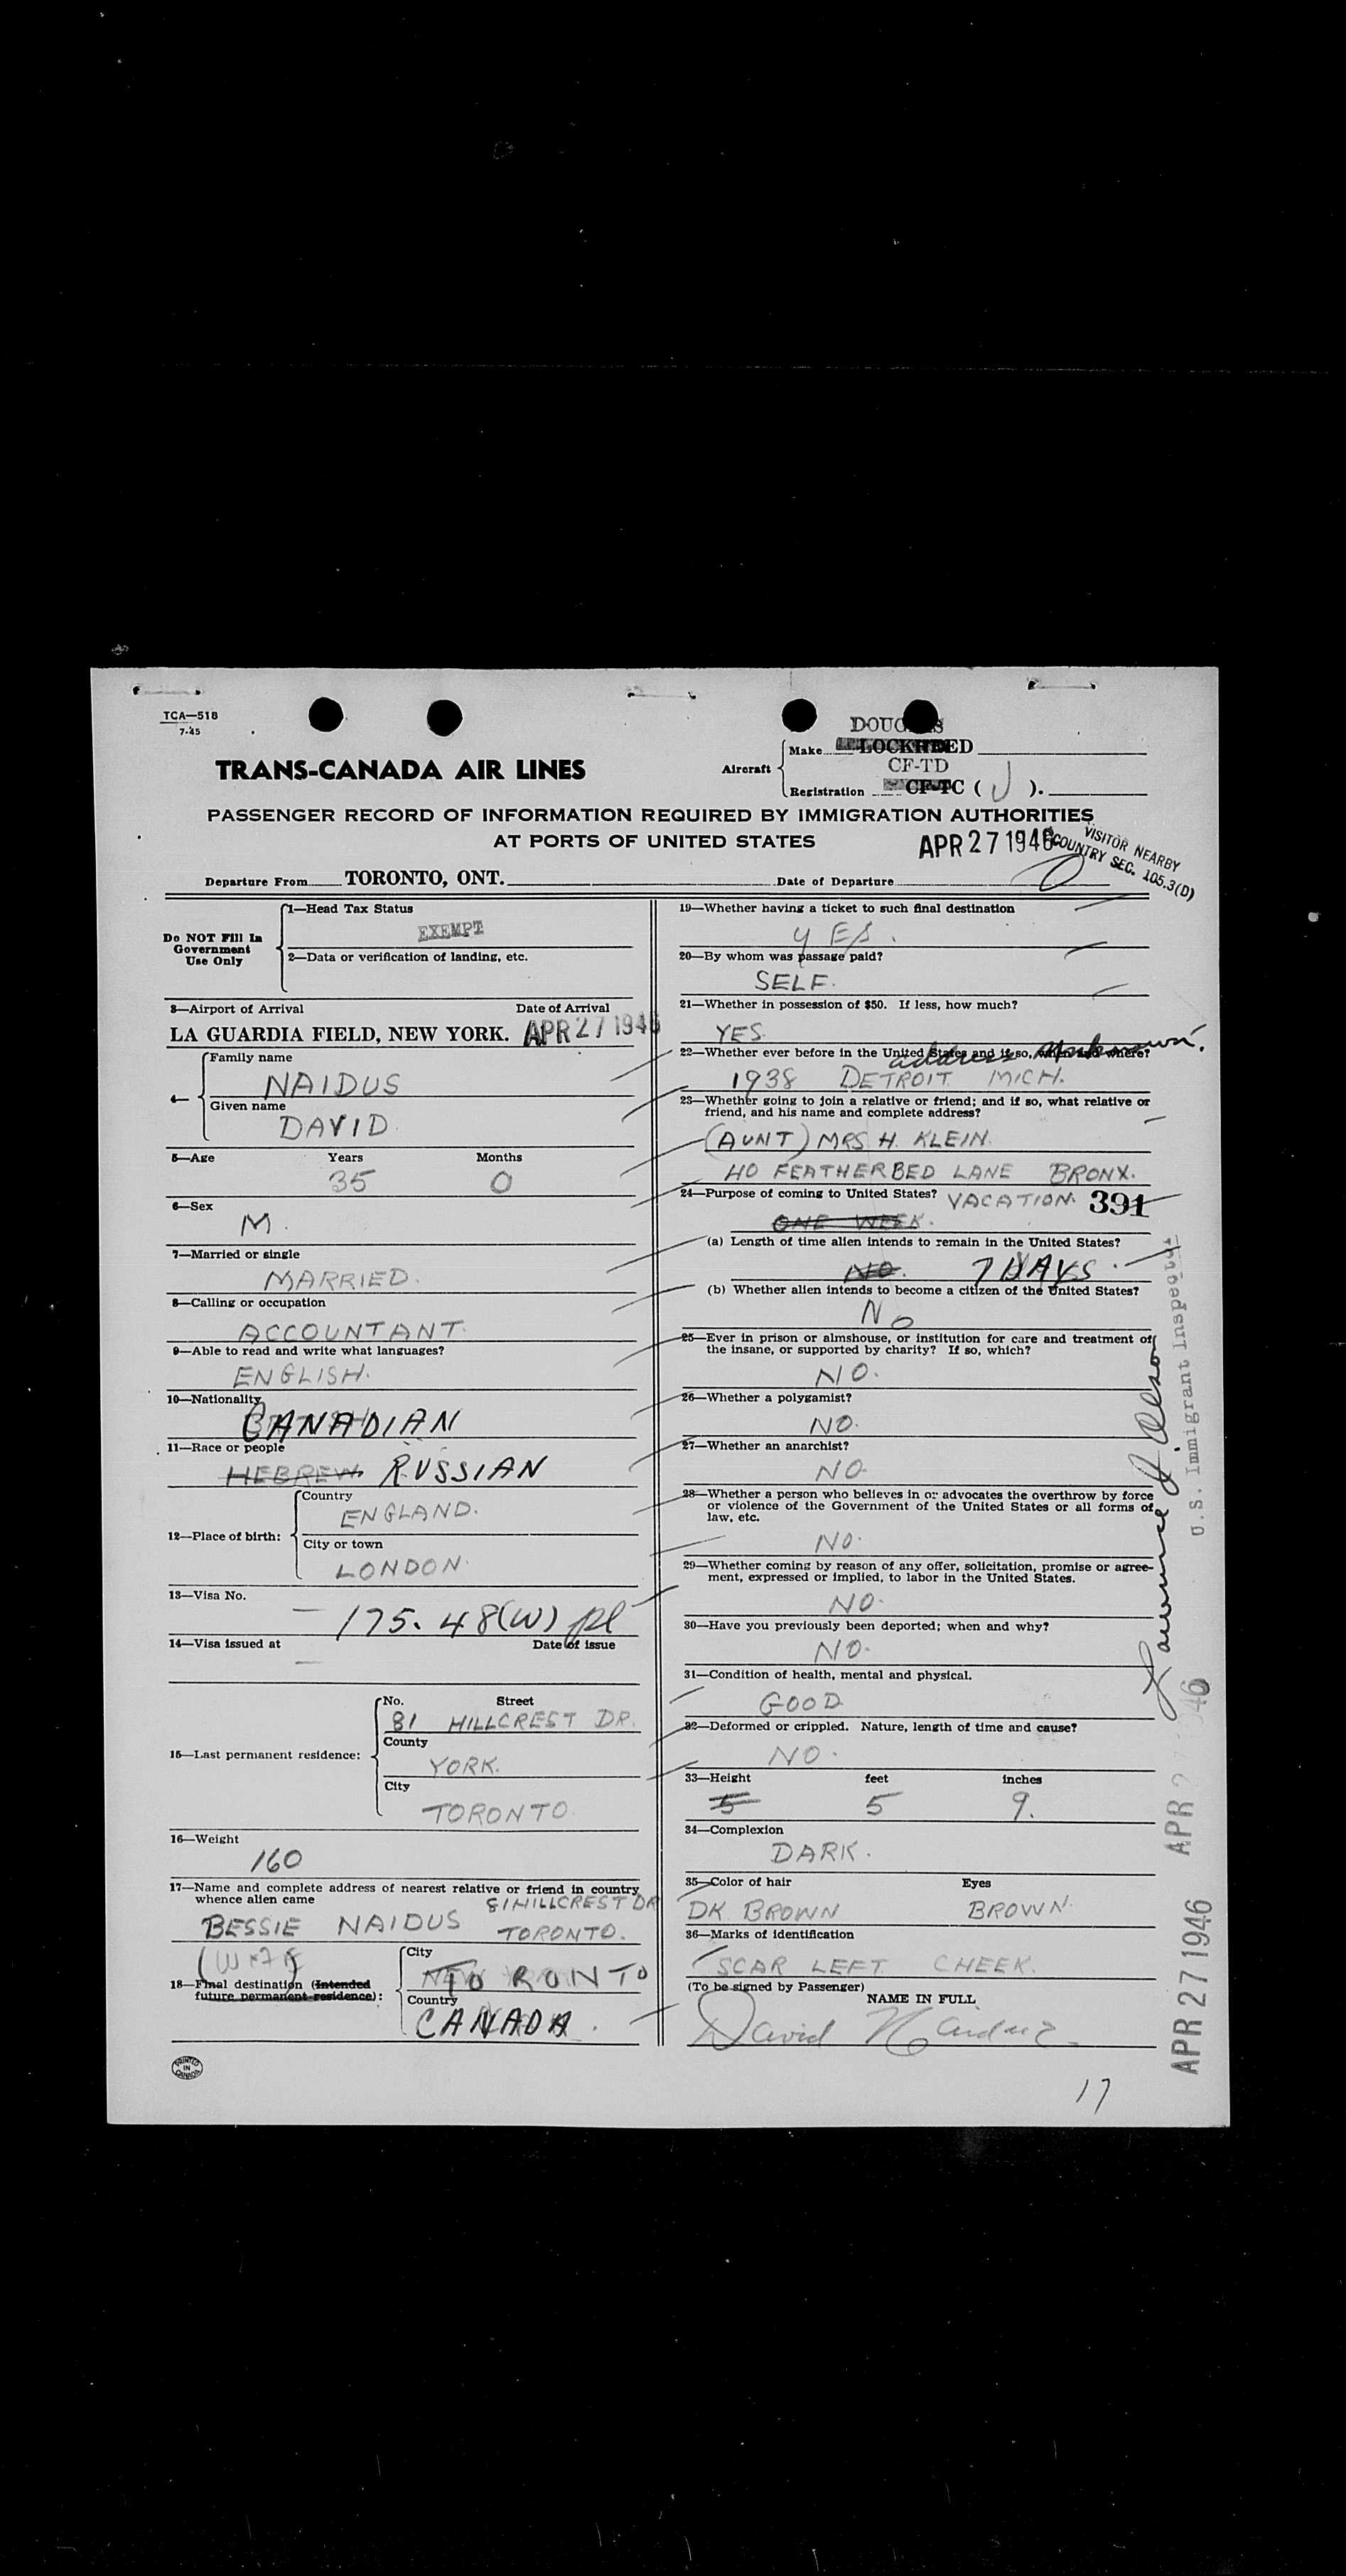 TCA—518
7-45
DOUGLAS
Make LOCKHEED
Aircraft
CF-TD
Registration CF-TC ( J ).
TRANS-CANADA AIR LINES
PASSENGER RECORD OF INFORMATION REQUIRED BY IMMIGRATION AUTHORITIES
AT PORTS OF UNITED STATES
APR 27 1946
VISITOR NEARBY
COUNTRY SEC. 105.3(D)
Departure From TORONTO, ONT. Date of Departure
Do NOT Fill In
Government
Use Only
1—Head Tax Status
EXEMPT
2—Data or verification of landing, etc.
3—Airport of Arrival Date of Arrival
LA GUARDIA FIELD, NEW YORK. APR 27 1946
4—
Family name
NAIDUS
Given name
DAVID
5—Age Years Months
35 0
6—Sex
M.
7—Married or single
MARRIED.
8—Calling or occupation
ACCOUNTANT.
9—Able to read and write what languages?
ENGLISH.
10—Nationality
CANADIAN
11—Race or people
HEBREW RUSSIAN
12—Place of birth:
Country
ENGLAND.
City or town
LONDON.
13—Visa No.
— 175.48(W) pl
14—Visa issued at Date of issue
—
15—Last permanent residence:
No. Street
81 HILLCREST DR.
County
YORK.
City
TORONTO.
16—Weight
160
17—Name and complete address of nearest relative or friend in country
whence alien came
81 HILLCREST DR
BESSIE NAIDUS TORONTO.
18—Final destination (Intended
future permanent residence):
City
TORONTO
Country
CANADA.
PRINTED
IN
CANADA
19—Whether having a ticket to such final destination
YES.
20—By whom was passage paid?
SELF.
21—Whether in possession of $50. If less, how much?
YES.
22—Whether ever before in the United States and if so, when and where?
address unknown.
1938 DETROIT MICH.
23—Whether going to join a relative or friend; and if so, what relative or
friend, and his name and complete address?
(AUNT) MRS H. KLEIN.
40 FEATHERBED LANE BRONX.
24—Purpose of coming to United States? VACATION. 391
ONE WEEK.
(a) Length of time alien intends to remain in the United States?
NO. 7 DAYS.
(b) Whether alien intends to become a citizen of the United States?
NO
25—Ever in prison or almshouse, or institution for care and treatment of
the insane, or supported by charity? If so, which?
NO.
26—Whether a polygamist?
NO.
27—Whether an anarchist?
NO
28—Whether a person who believes in or advocates the overthrow by force
or violence of the Government of the United States or all forms of
law, etc.
NO.
29—Whether coming by reason of any offer, solicitation, promise or agree-
ment, expressed or implied, to labor in the United States.
NO.
30—Have you previously been deported; when and why?
NO.
31—Condition of health, mental and physical.
GOOD
32—Deformed or crippled. Nature, length of time and cause?
NO.
33—Height feet inches
5 5 9.
34—Complexion
DARK.
35—Color of hair Eyes
DK. BROWN BROWN.
36—Marks of identification
SCAR LEFT CHEEK.
(To be signed by Passenger)
NAME IN FULL
David Naidus
U.S. Immigrant Inspector
APR 2 46
APR 27 1946
17